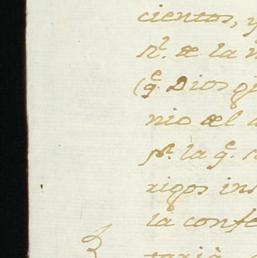 cientos, y
Sr. de la
(q.e Dios g
nio del
Sr. la q.e
rigos ins
la confe
taria